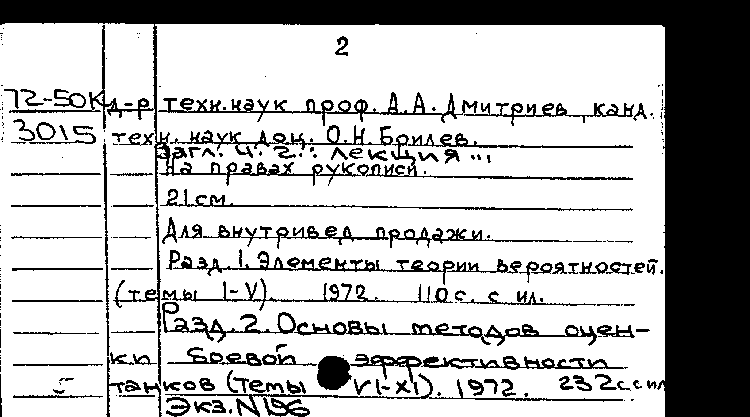 2
72-50К д-р техн.наук проф. Д.А. Дмитриев, канд.
3015 техн. наук доц. О.Н. Брилев.
Загл. ч. 2.: Лекция ...
На правах рукописи.
21 см.
Для внутривед продажи.
Разд. 1. Элементы теории вероятностей.
(темы I-V). 1972. 110 с. с ил.
Разд. 2. Основы методов оцен-
ки боевой эффективности
5 танков (темы VI-XI). 1972. 232 с. с ил
Экз. N 196